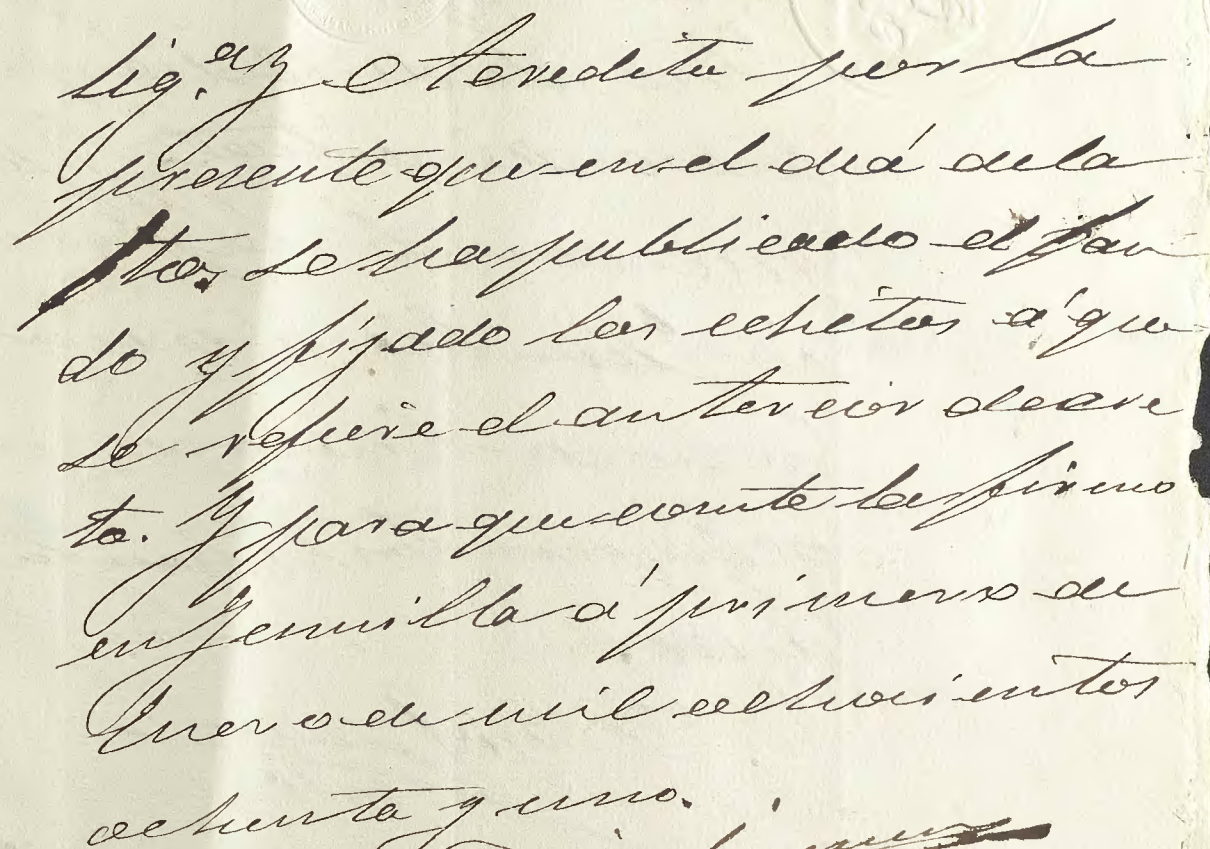 Lig.ª y Acredita por la
presente que en el diá dela
fta, se ha publicado el ban
do y fijado los echitos á que
se refiere el anterior decre
to. Y para que conste la firmo
en Jumilla á primero de
Enero de mil ochocientos
ochenta y uno.